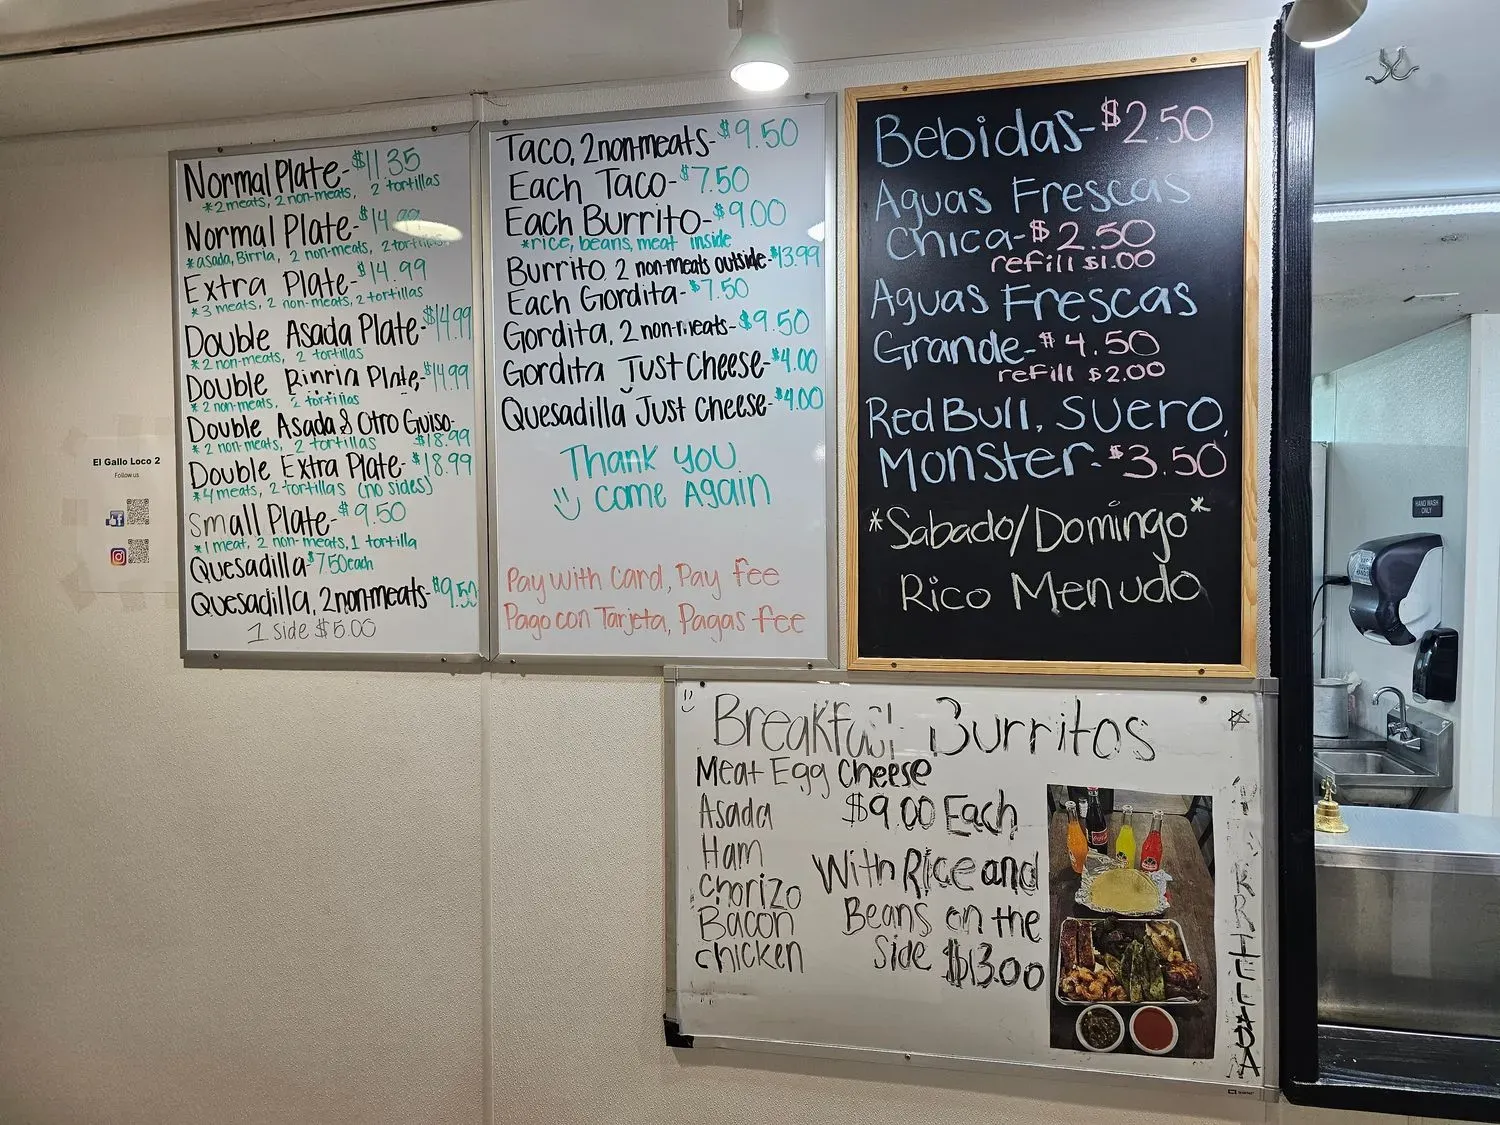 El Gallo Loco 2
Follow us
Normal Plate-$11.35
*2 meats, 2 non-meats, 2 tortillas
Normal Plate-$14.99
*asada, Birria, 2 non-meats, 2 tortillas
Extra Plate-$14.99
*3 meats, 2 non-meats, 2 tortillas
Double Asada Plate-$14.99
*2 non-meats, 2 tortillas
Double Birria Plate-$14.99
*2 non-meats, 2 tortillas
Double Asada & Otro Guiso-
*2 non-meats, 2 tortillas $18.99
Double Extra Plate-$18.99
*4 meats, 2 tortillas (no sides)
Small Plate-$9.50
*1 meat, 2 non-meats, 1 tortilla
Quesadilla-$7.50each
Quesadilla, 2 non-meats-$9.50
1 side $5.00
Taco, 2 non-meats-$9.50
Each Taco-$7.50
Each Burrito-$9.00
*rice, beans, meat inside
Burrito, 2 non-meats outside-$13.99
Each Gordita-$7.50
Gordita, 2 non-meats-$9.50
Gordita Just Cheese-$4.00
Quesadilla Just Cheese-$4.00
Thank you
Come Again
Pay with Card, Pay fee
Pago con Tarjeta, Pagas fee
Bebidas-$2.50
Aguas Frescas
Chica-$2.50
refill $1.00
Aguas Frescas
Grande-$4.50
refill $2.00
Red Bull, Suero,
Monster-$3.50
*Sabado/Domingo*
Rico Menudo
HAND WASH
ONLY
Breakfast Burritos
Meat Egg Cheese
Asada
Ham
Chorizo
Bacon
Chicken
$9.00 Each
With Rice and
Beans on the
Side $13.00